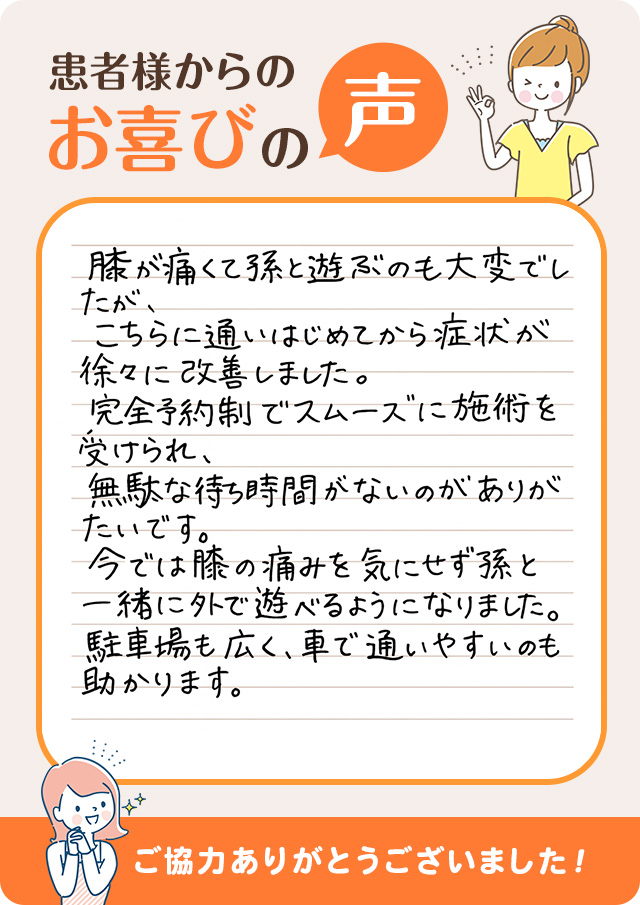 患者様からの
お喜びの
声
膝が痛くて孫と遊ぶのも大変でし
たが、
こちらに通いはじめてから症状が
徐々に改善しました。
完全予約制でスムーズに施術を
受けられ、
無駄な待ち時間がないのがありが
たいです。
今では膝の痛みを気にせず孫と
一緒に外で遊べるようになりました。
駐車場も広く、車で通いやすいのも
助かります。
ご協力ありがとうございました！